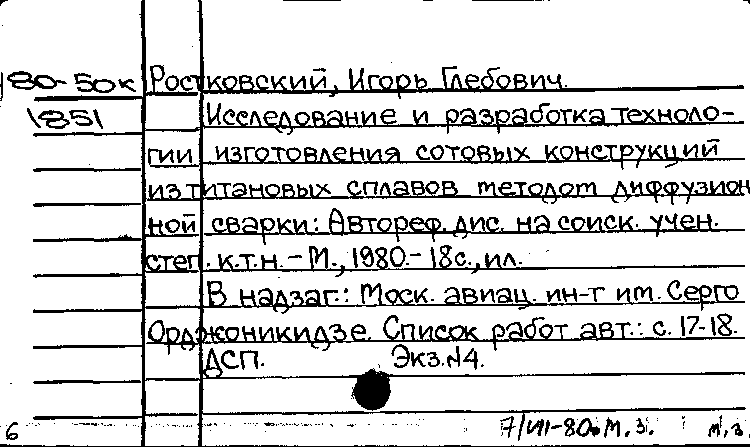 80-50к Ростковский, Игорь Глебович.
1851 Исследование и разработка техноло-
гии изготовления сотовых конструкций
из титановых сплавов методом диффузион
ной сварки: Автореф. дис. на соиск. учен.
степ. к.т.н. - М., 1980. - 18с., ил.
В надзаг.: Моск. авиац. ин-т им. Серго
Орджоникидзе. Список работ авт.: с. 17-18.
ДСП. Экз.№4.
6 7/VII-80. М.З. М.З